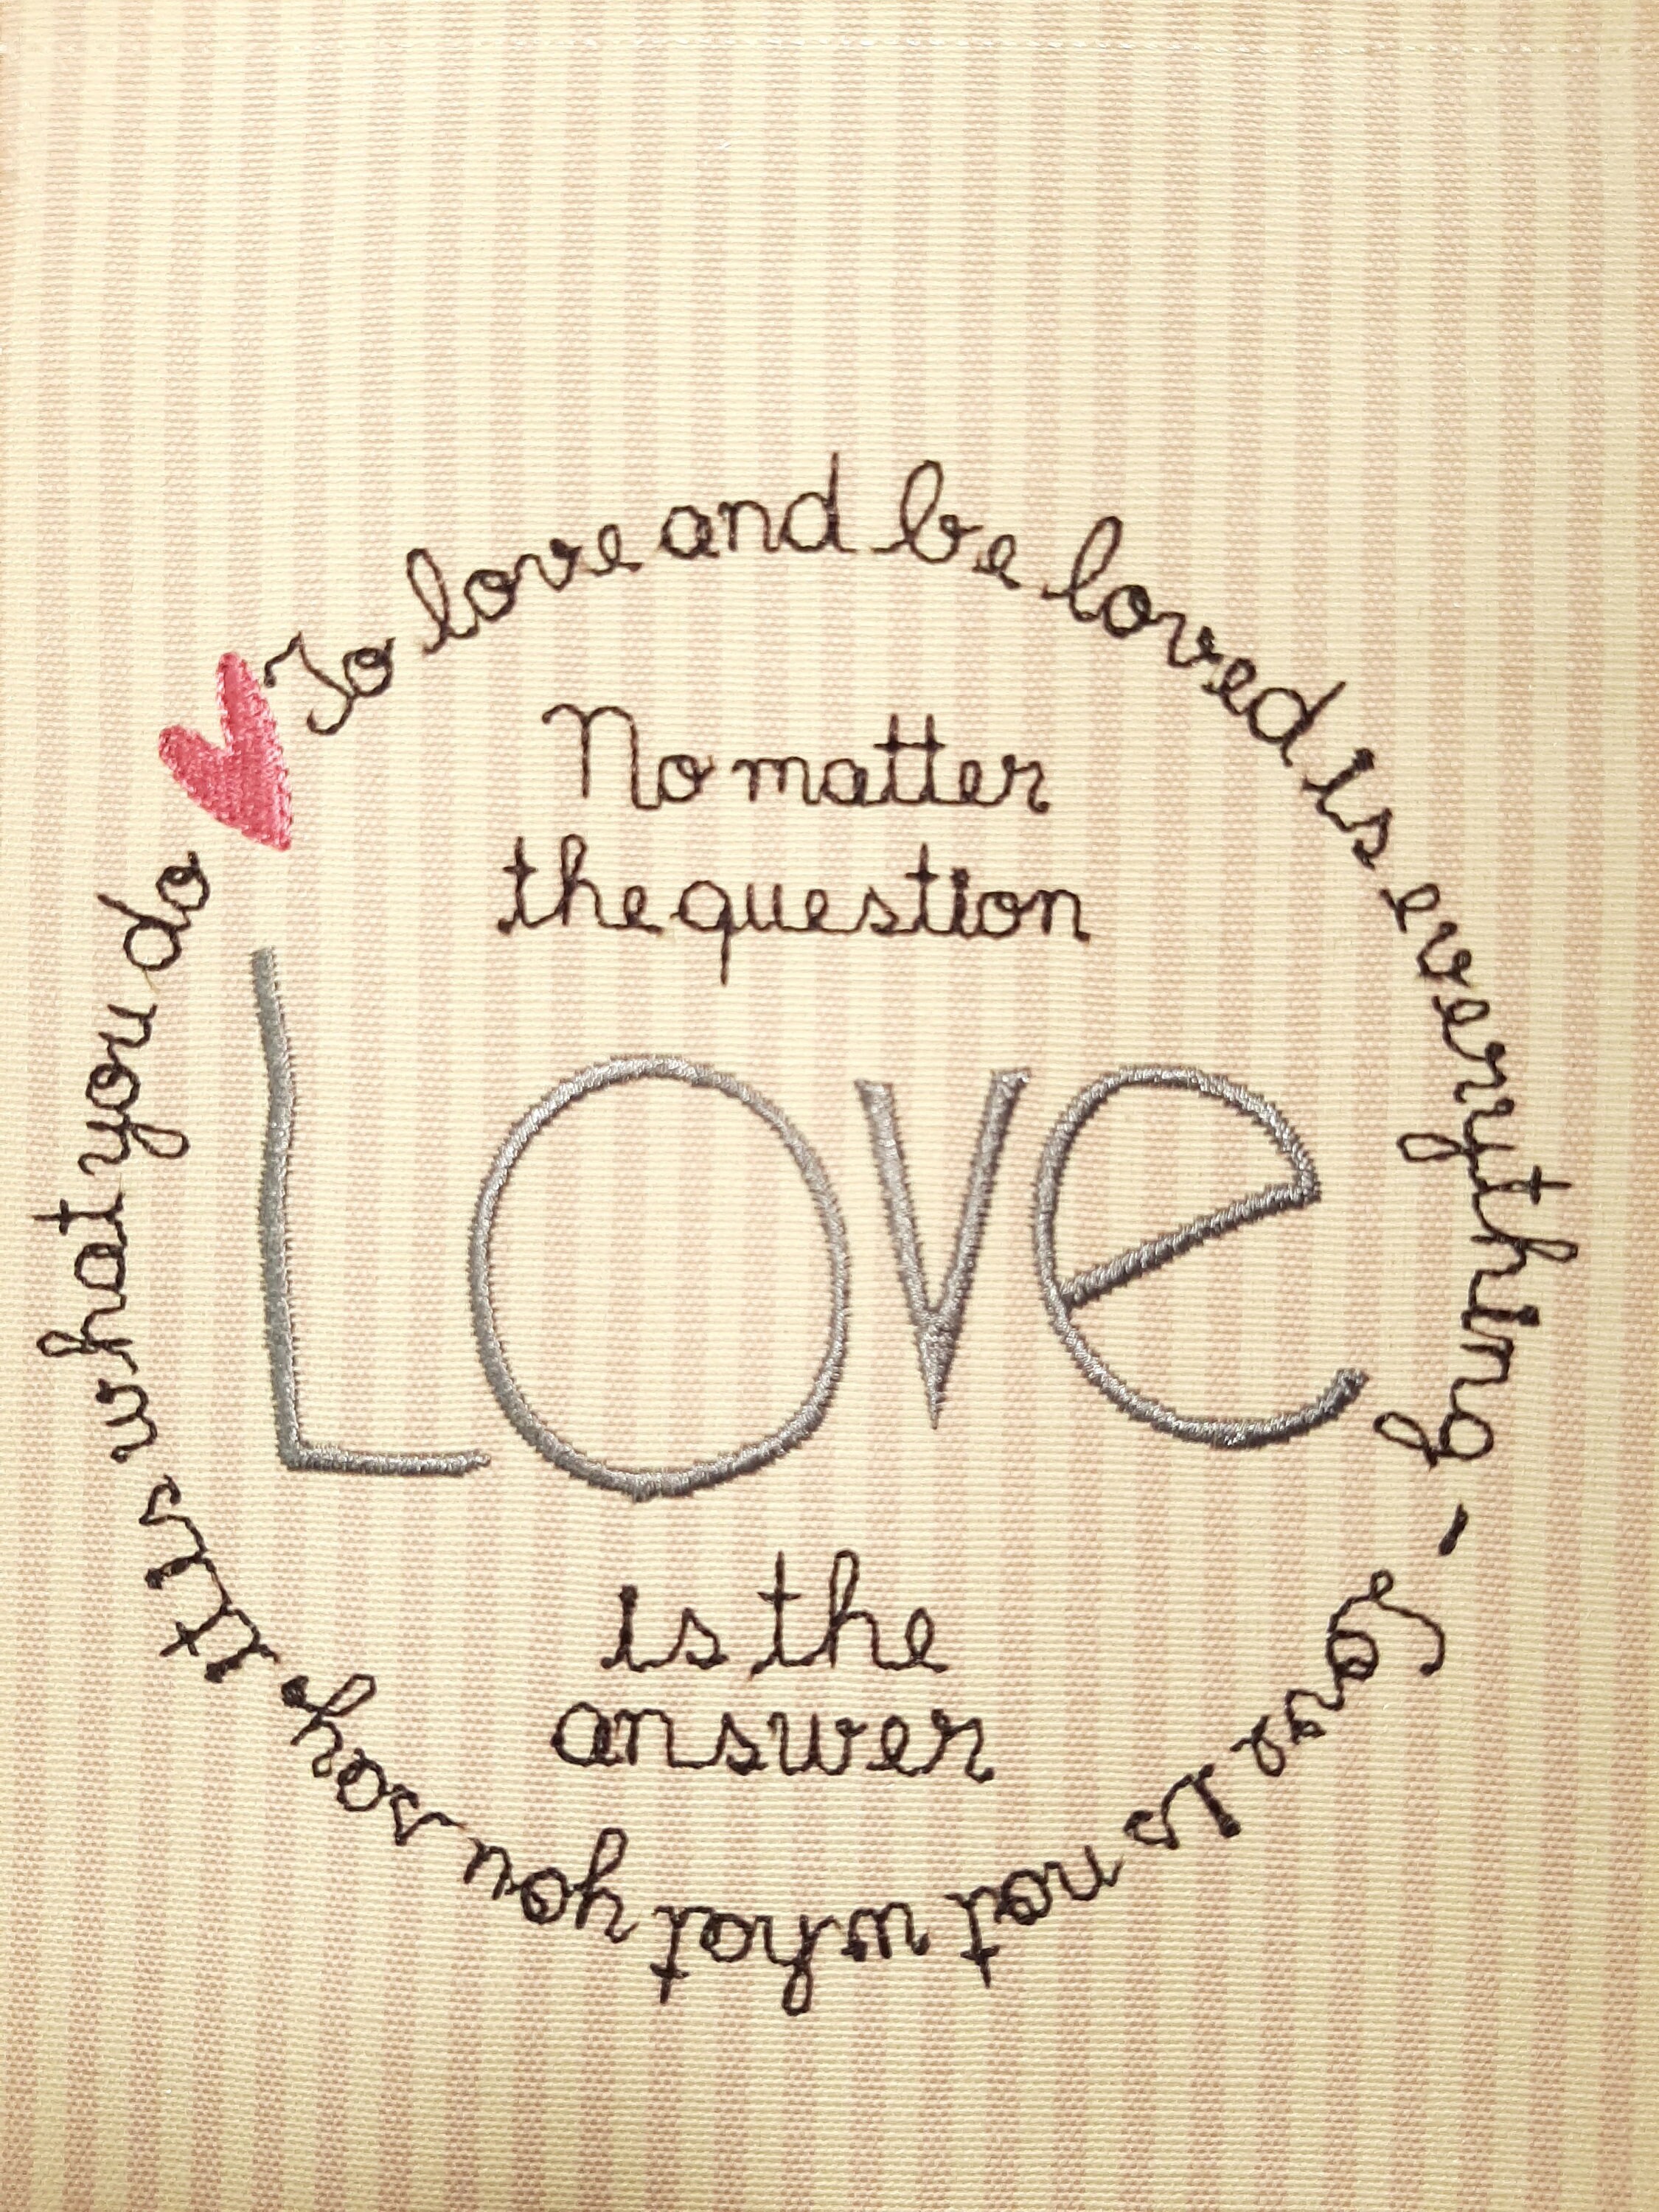 To love and be loved is everything - Love is not what you say, it is what you do
No matter
the question
Love
is the
answer